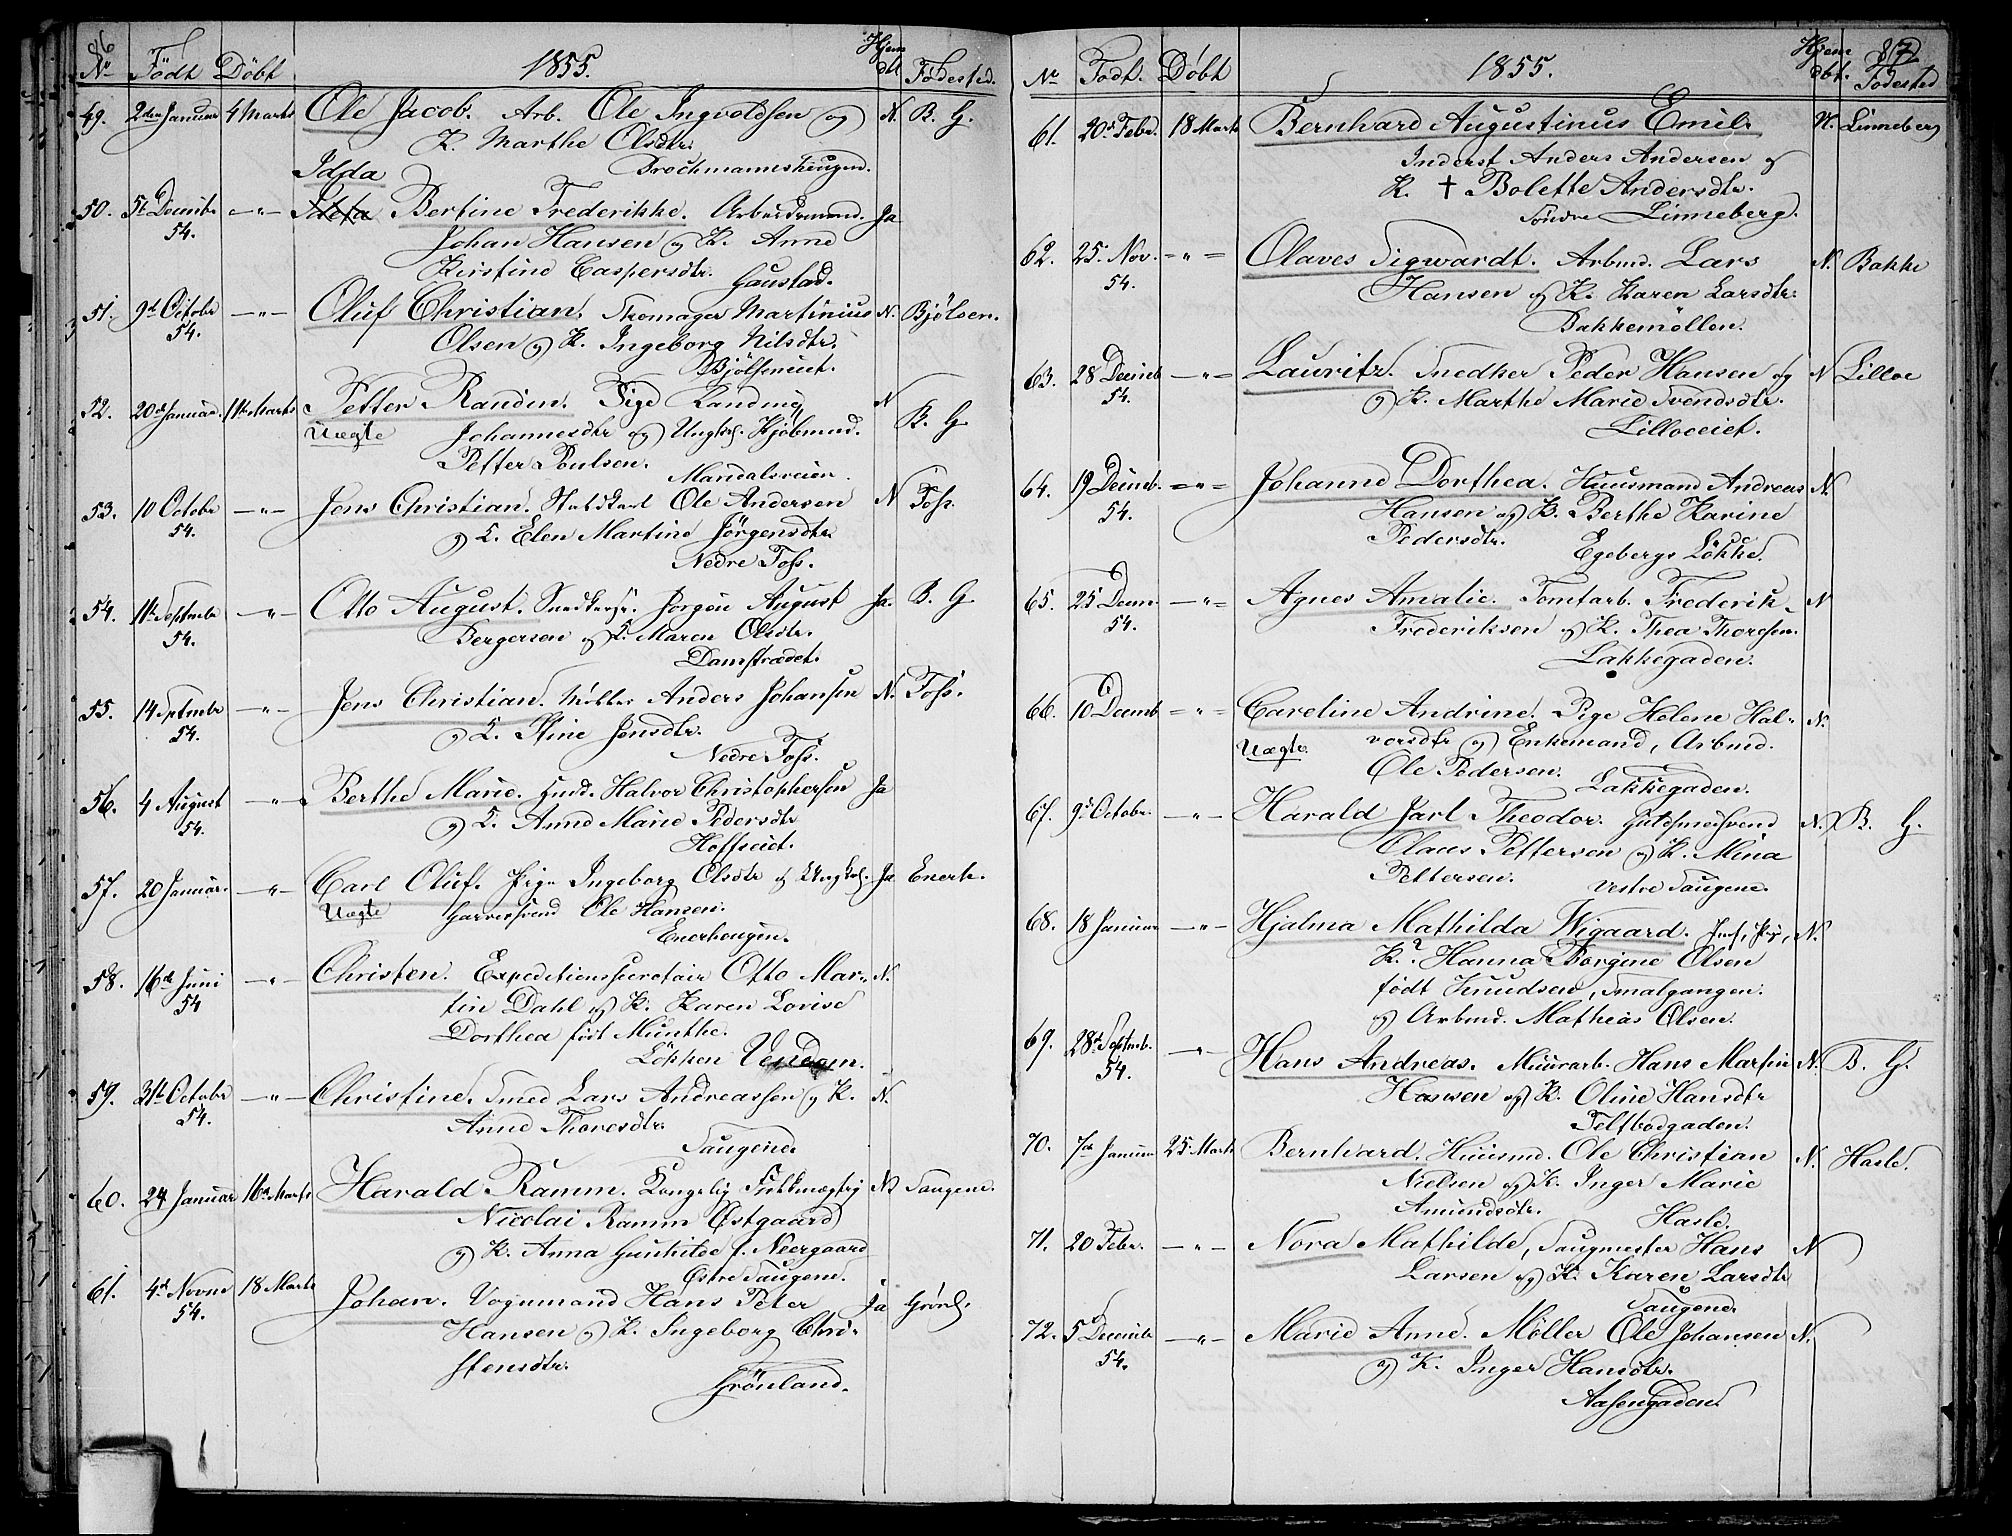 86
No Födt Döbt 1855. Hjem dbt Födested.
49. 2den Januar 4 Marts Ole Jacob. Arb. Ole Ingvoldsen og N. B. G.
K. Marthe Olsdtr.
Brochmannshougen.
Idda
50. 5te Decembr 54. -"- Bertine Frederikke. Arbeidsmand. Ja
Johan Hansen og K. Anne
Kirstine Caspersdtr. Gaustad.
51. 9de Octobr 54. -"- Oluf Christian. Skomager Martinius N. Bjölsen.
Olsen og K. Ingeborg Nilsdtr.
Bjölseneiet.
52. 20de Januar. 11te Marts Petter Randin. Pige Randine N B. G.
Uægte Johannesdtr og Ungk. Kjöbmnd.
Petter Poulsen. Mandalsveien.
53. 10 Octobr 54. -"- Jens Christian. Staldkarl Ole Andersen N Foss.
og K. Elen Martine Jörgensdtr
Nedre Foss.
54. 11te Septembr 54. -"- Otto August. Snedkersv. Jörgen August Ja. B. G.
Bergersen og K. Maren Olsdtr.
Damstrædet.
55. 14 Septembr 54. -"- Jens Christian. Möller Anders Johansen N. Foss.
og K. Stine Jensdtr.
Nedre Foss.
56. 4 August 54. -"- Berthe Marie. Huusmd. Halvor Christophersen Ja
og K. Anne Marie Pedersdtr
Hoffseiet.
57. 20 Januar. -"- Carl Oluf. Pige Ingeborg Olsdtr og Ungk. Ja Enerh.
Uægte Garversvend Ole Hansen.
Enerhougen.
58. 16de Juni 54 -"- Christen. Expeditionssecretair Otto Mar- N.
tin Dahl og K. Karen Lovise
Dorthea född Munthe.
Lökken Vendom.
59. 31te Octobr 54. -"- Christine. Smed Lars Andreassen og K. N.
Anne Thoresdtr.
Saugene
60. 24 Januar 16de Marts Harald Ramm. Kongelig Fuldmægtig N Saugene.
Nicolai Ramm Østgaard
og K. Anna Gunhilde f. Neergaard
Østre Saugene.
61. 4de Novmr 54. 18 Marts Johan. Vognmand Hans Peter Ja Grönl.
Hansen og K. Ingeborg Chri-
stensdtr.
Grönland.
87
No Födt. Döbt 1855. Hjem dbt. Födested
61. 20de Febr. 18 Marts Bernhard Augustinus Emil. N. Linneberg
Inderst Anders Andersen og
K. † Bolette Andersdtr.
Söndre Linneberg.
62. 25. Nov. 54. -"- Olaves Sigwardt. Arbmd. Lars N. Bakke
Hansen og K. Karen Larsdtr.
Bakkemöllen.
63. 28 Decemb 54. -"- Lauritz. Snedker Peder Hansen og N Lilloe
og K. Marthe Marie Svendsdtr.
Lilloeeiet.
64. 19 Decemb. 54. -"- Johanne Dorthea. Huusmand Andreas N.
Hansen og K. Berthe Karine
Pedersdtr. Egebergs Lökke
65. 25 Decm. 54. -"- Agnes Amalie. Tomtarb. Frederik N
Frederiksen og K. Thea Thoresen.
Lakkegaden.
66. 10 Decemb -"- Careline Andrine. Pige Helene Hal- N.
Uægte vorsdtr og Enkemand, Arbmd.
Ole Pedersen. Lakkegaden.
67. 9de Octobr. -"- Harald Jarl Theodor. Guldsmedsvend N. B. G.
Olaus Pettersen og K. Mina
Pettersen. Vestre Saugene.
68. 18 Januar -"- Hjalma Mathilda Wigaard. N.
K.? Hanna Borgine Olsen
född Knudsen, Smalgangen.
og Arbmd. Mathias Olsen.
69. 28de Septemb. 54. -"- Hans Andreas. Muurarb. Hans Martin N. B. G.
Hansen og K. Oline Hansdtr
Feltbodgaden.
70. 7de Januar 25. Marts Bernhard. Huusmd. Ole Christian N. Hasle.
Nielsen og K. Inger Marie
Amundsdtr. Hasle.
71. 20 Febr. -"- Nora Mathilde, Saugmester Hans N
Larsen og K. Karen Larsdtr
Saugene.
72. 5 Decembr 54. -"- Marie Anne. Möller Ole Johansen N.
og K. Inger Hansdtr.
Aasengaden.